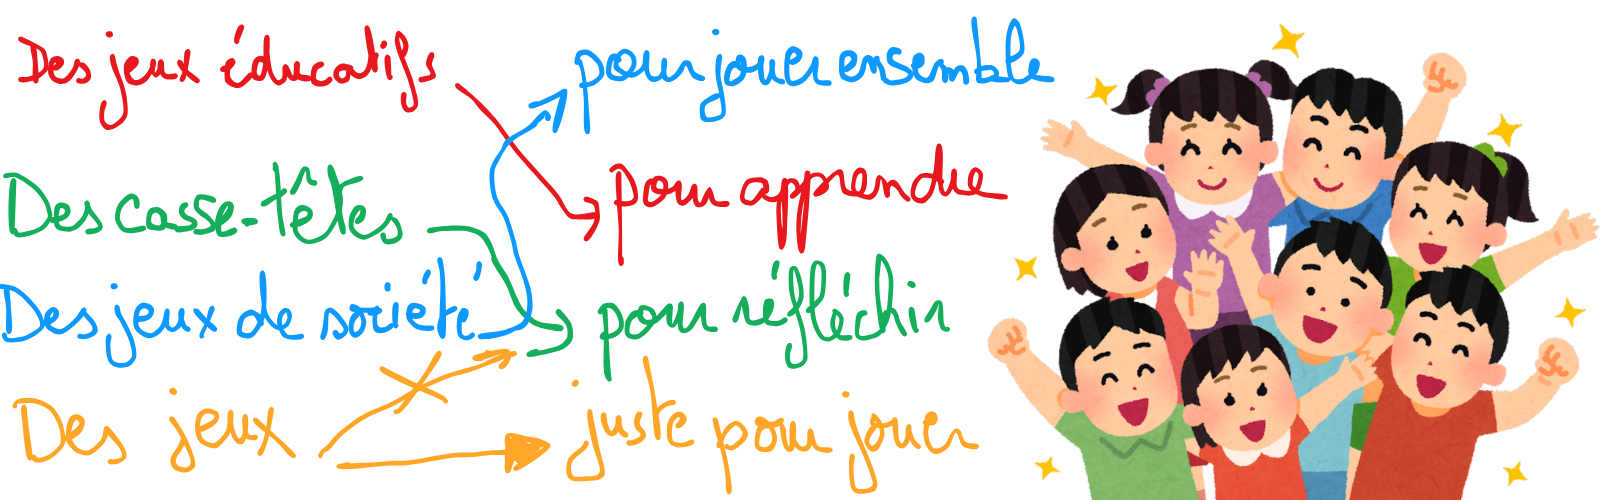 Des jeux éducatifs
pour jouer ensemble
Des casse-têtes
pour apprendre
Des jeux de société
pour réfléchir
Des jeux
juste pour jouer